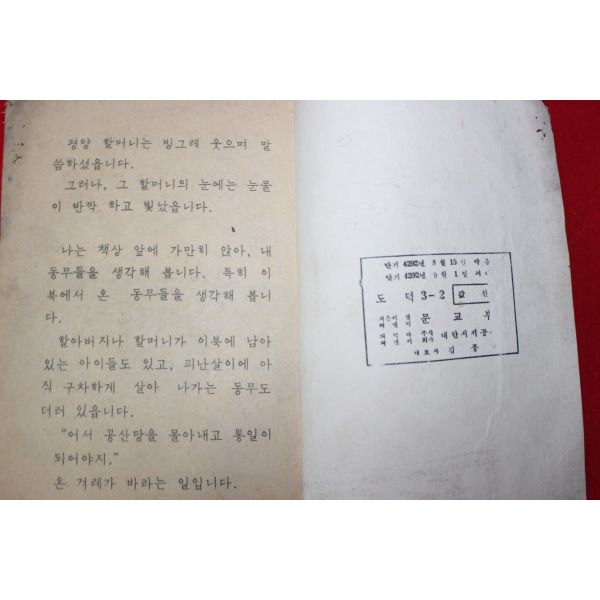 평양 할머니는 빙그레 웃으며 말
씀하셨읍니다.
그러나, 그 할머니의 눈에는 눈물
이 반짝 하고 빛났읍니다.
나는 책상 앞에 가만히 앉아, 내
동무들을 생각해 봅니다. 특히 이
북에서 온 동무들을 생각해 봅니
다.
할아버지나 할머니가 이북에 남아
있는 아이들도 있고, 피난살이에 아
직 구차하게 살아 나가는 동무도
더러 있읍니다.
“어서 공산당을 몰아내고 통일이
되어야지.”
온 겨레가 바라는 일입니다.
단기 4292년 8월 15일 박
단기 4292년 9월 1일 펴
도덕 3-2 값 환
문교부
주식
회사 대한서적공
대표자 김